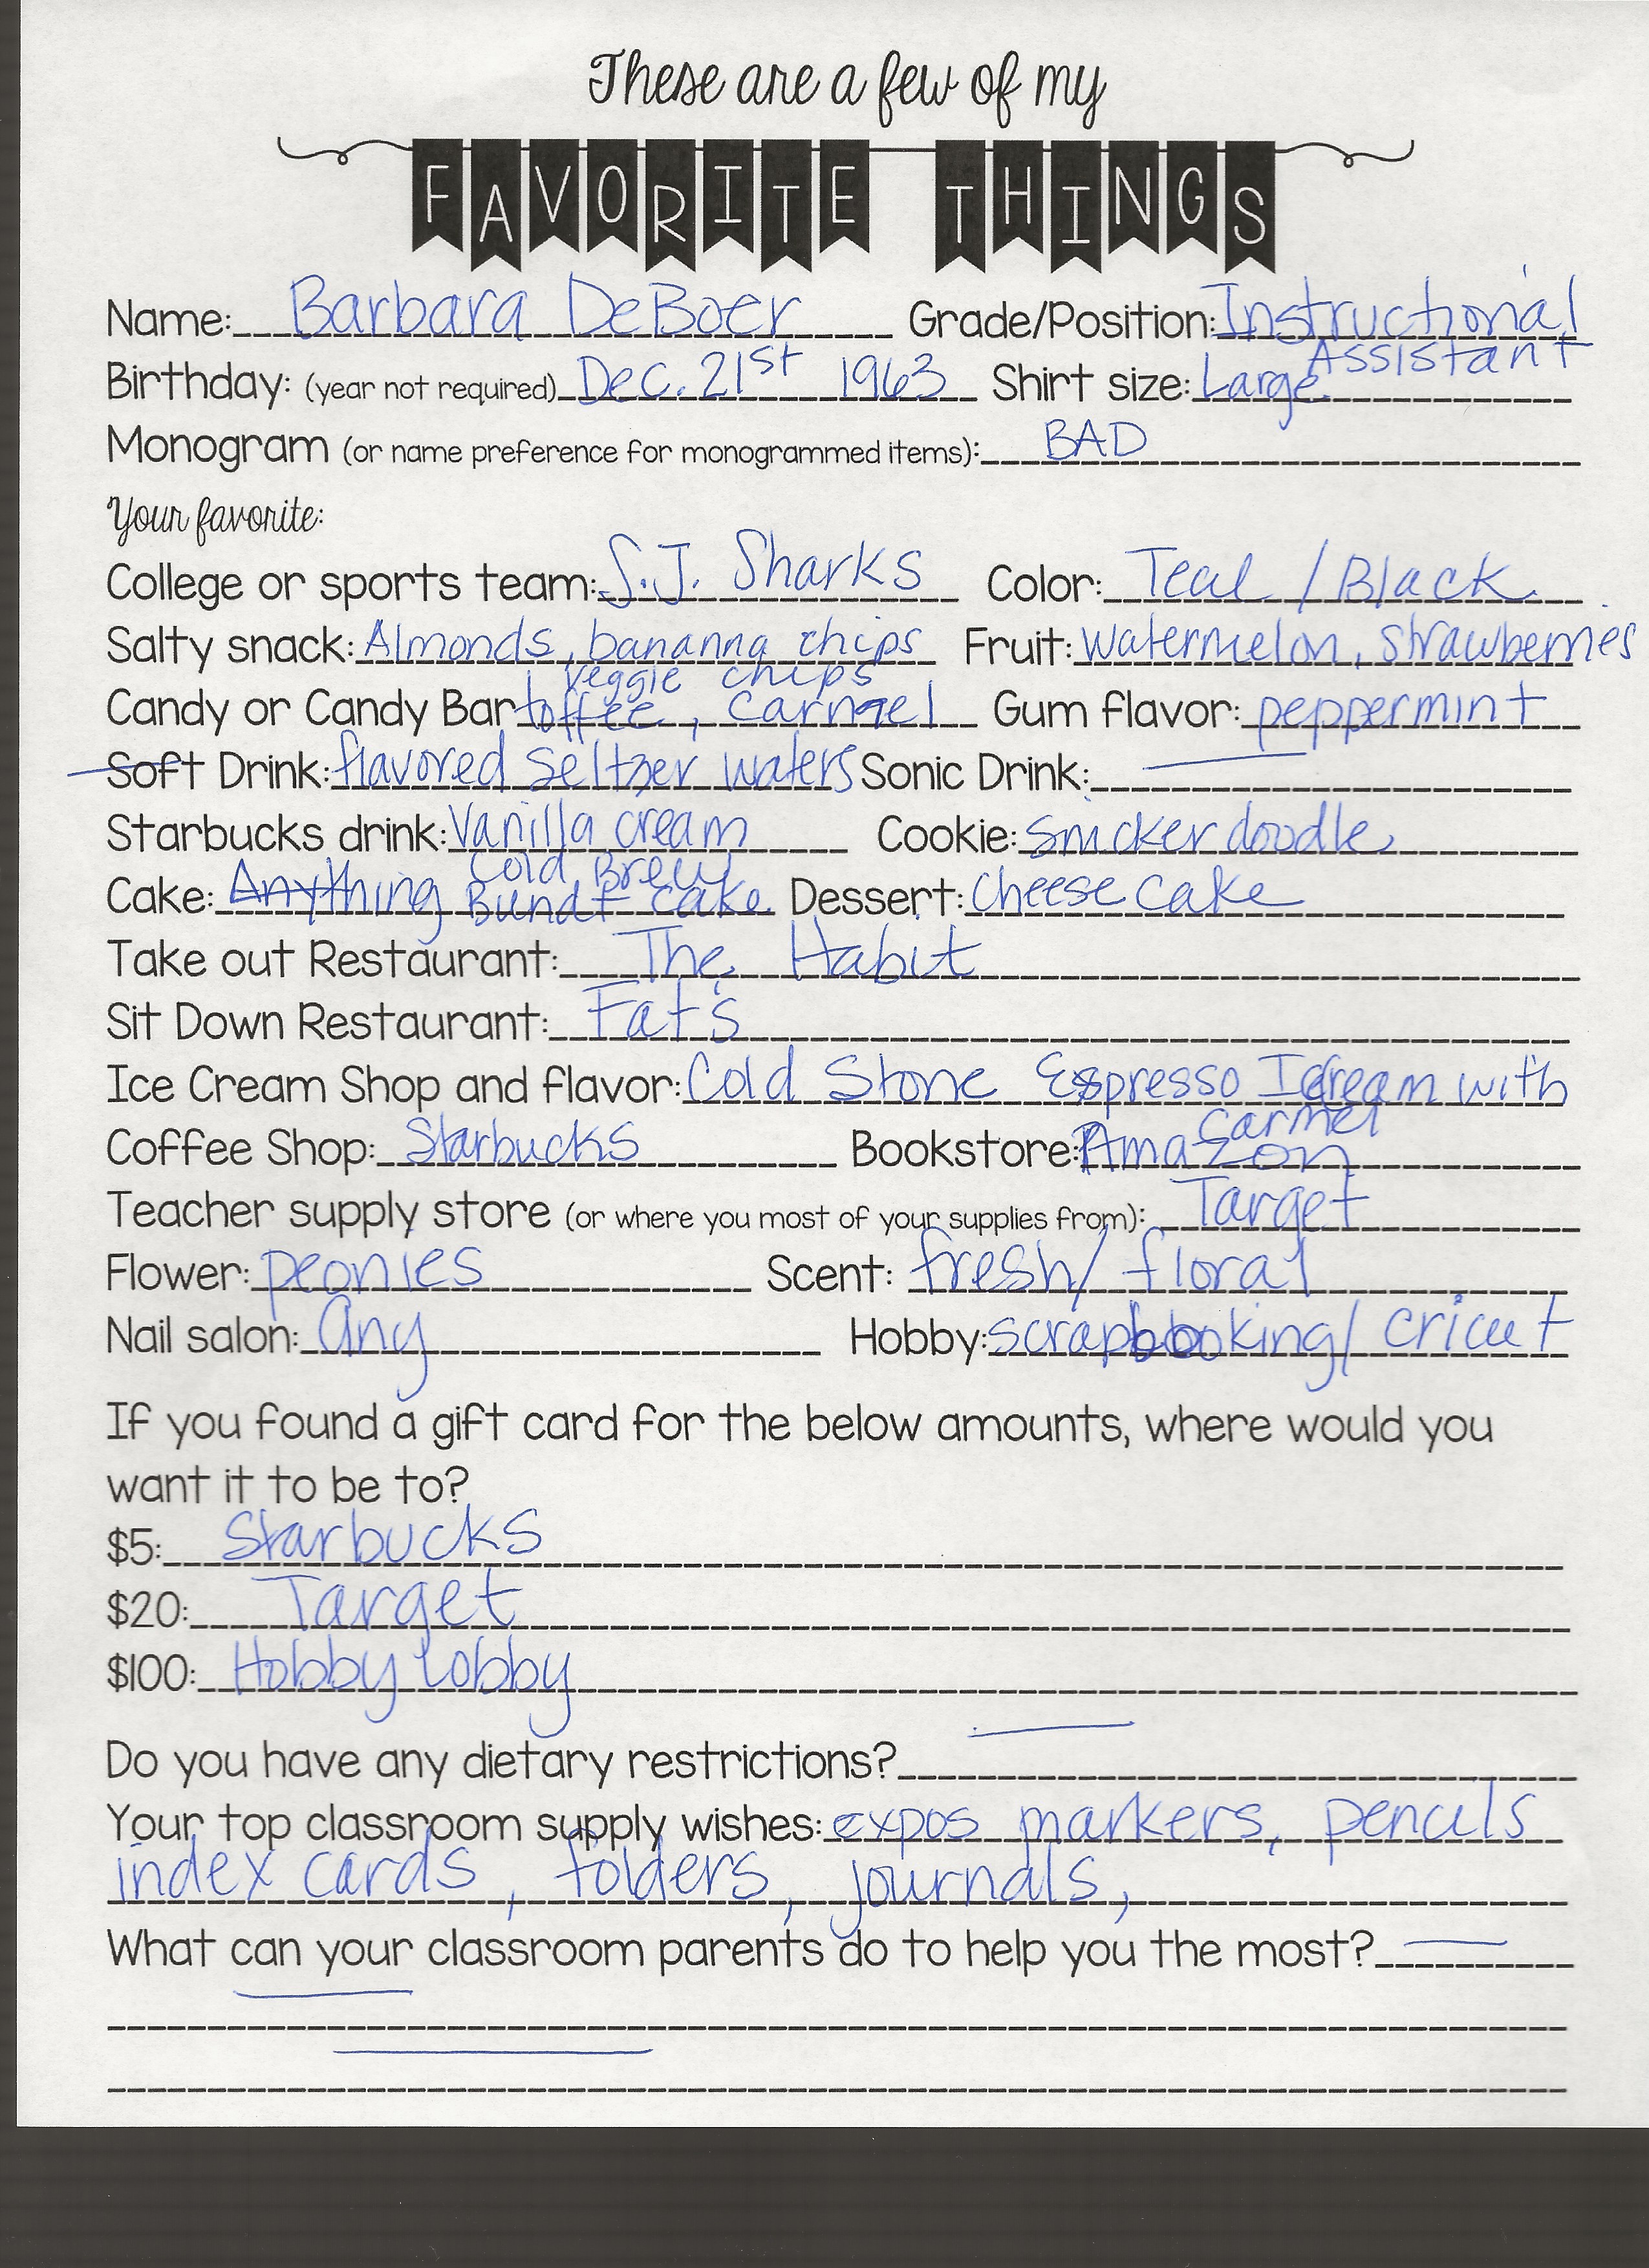 These are a few of my
FAVORITE THINGS
Name: Barbara DeBoer Grade/Position: Instructional
Assistant
Birthday: (year not required) Dec. 21st 1963 Shirt size: Large
Monogram (or name preference for monogrammed items): BAD
Your favorite:
College or sports team: S.J. Sharks Color: Teal / Black
Salty snack: Almonds, bananna chips Fruit: watermelon, strawberries
veggie chips
Candy or Candy Bar toffee, carmel Gum flavor: peppermint
Soft Drink: flavored seltzer waters Sonic Drink:
Starbucks drink: Vanilla cream Cookie: snickerdoodle
Cold Brew
Cake: Anything Bundt cake Dessert: Cheese cake
Take out Restaurant: The Habit
Sit Down Restaurant: Fat's
Ice Cream Shop and flavor: Cold Stone Espresso Icream with
carmel
Coffee Shop: Starbucks Bookstore: Amazon
Teacher supply store (or where you most of your supplies from): Target
Flower: peonies Scent: fresh/ floral
Nail salon: any Hobby: scrapbooking/ cricut
If you found a gift card for the below amounts, where would you
want it to be to?
$5: Starbucks
$20: Target
$100: Hobby lobby
Do you have any dietary restrictions?
Your top classroom supply wishes: expos markers, pencils
index cards, folders, journals,
What can your classroom parents do to help you the most?